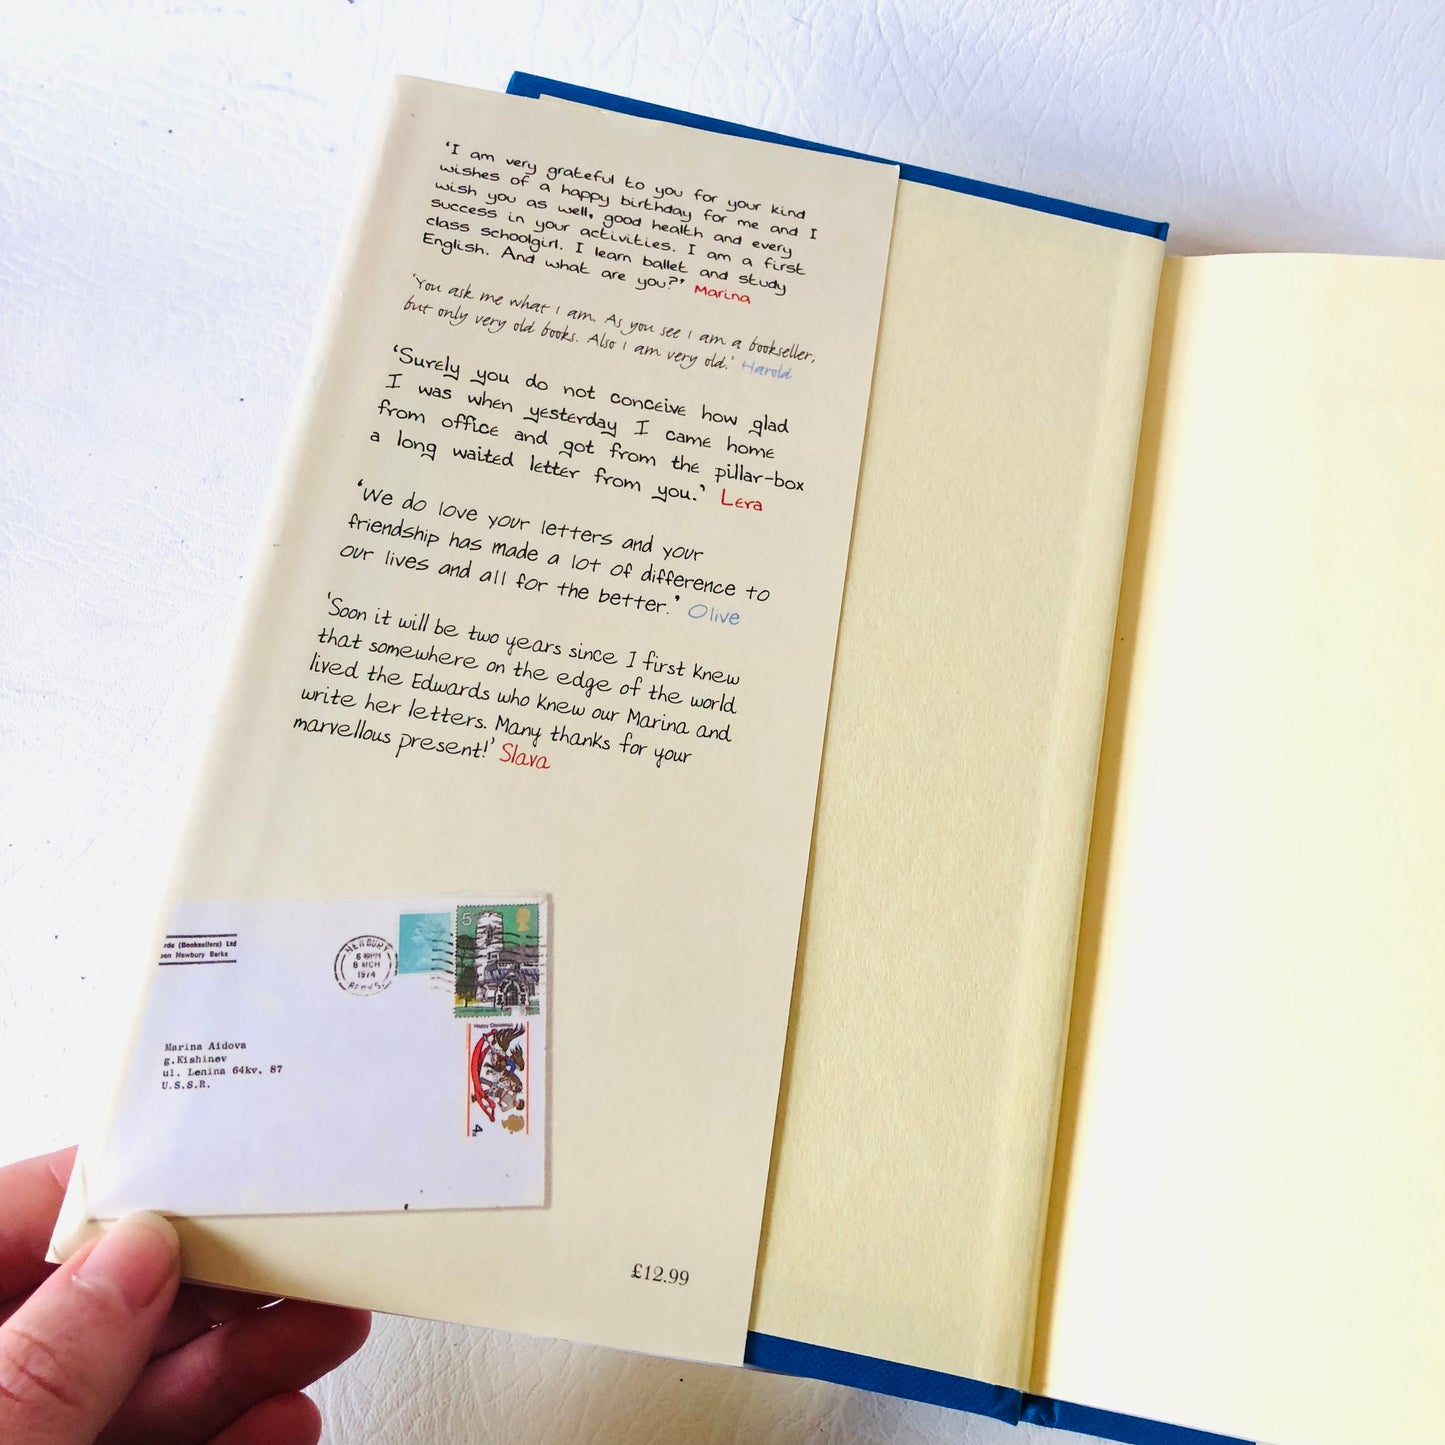 'I am very grateful to you for your kind
wishes of a happy birthday for me and I
wish you as well, good health and every
success in your activities. I am a first
class schoolgirl. I learn ballet and study
English. And what are you?' Marina
'You ask me what I am. As you see I am a bookseller,
but only very old books. Also I am very old.' Harold
'Surely you do not conceive how glad
I was when yesterday I came home
from office and got from the pillar-box
a long waited letter from you.' Lera
'We do love your letters and your
friendship has made a lot of difference to
our lives and all for the better.' Olive
'Soon it will be two years since I first knew
that somewhere on the edge of the world
lived the Edwards who knew our Marina and
write her letters. Many thanks for your
marvellous present!' Slava
rds (Booksellers) Ltd
een Newbury Berks
NEWBURY
8 MCH
1974
BERKS
5
Happy Christmas
4
Marina Aidova
g.Kishinev
ul. Lenina 64kv. 87
U.S.S.R.
£12.99